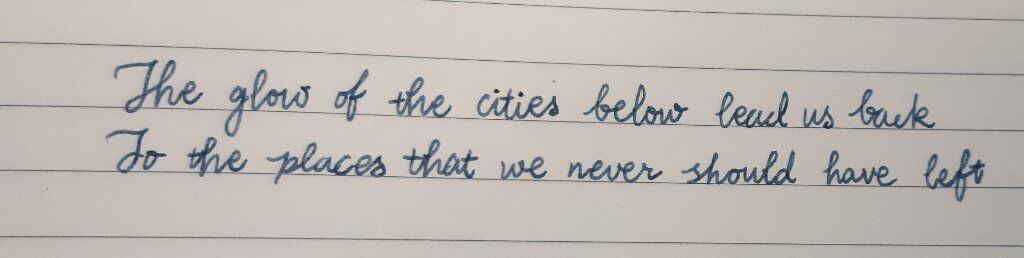 The glow of the cities below lead us back
To the places that we never should have left